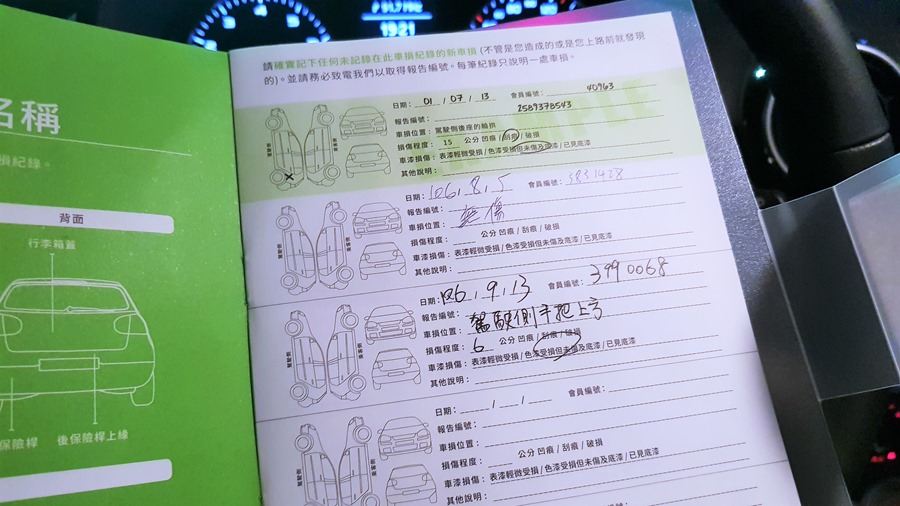 1921
名稱
損紀錄。
背面
行李箱蓋
保險桿 後保險桿上緣
請確實記下任何未記錄在此車損紀錄的新車損 (不管是您造成的或是您上路前就發現
的)。並請務必致電我們以取得報告編號。每筆紀錄只說明一處車損。
日期： 01 / 07 / 13 會員編號： 40963
報告編號： 2589378543
車損位置： 駕駛側後座的輪損
損傷程度： 15 公分 凹痕 / 刮痕 / 破損
車漆損傷：表漆輕微受損 / 色漆受損但未傷及底漆 / 已見底漆
其他說明：
駕駛側
乘客側
日期： 106 / 8 / 5 會員編號： 5851428
報告編號：
車損位置： 無傷
損傷程度： 公分 凹痕 / 刮痕 / 破損
車漆損傷：表漆輕微受損 / 色漆受損但未傷及底漆 / 已見底漆
其他說明：
駕駛側
乘客側
日期： 106 / 9 / 13 會員編號： 3990068
報告編號：
車損位置： 駕駛側手把上方
損傷程度： 6 公分 凹痕 / 刮痕 / 破損
車漆損傷：表漆輕微受損 / 色漆受損但未傷及底漆 / 已見底漆
其他說明：
駕駛側
乘客側
日期： / / 會員編號：
報告編號：
車損位置：
損傷程度： 公分 凹痕 / 刮痕 / 破損
車漆損傷：表漆輕微受損 / 色漆受損但未傷及底漆 / 已見底漆
其他說明：
駕駛側
乘客側
會員編號：